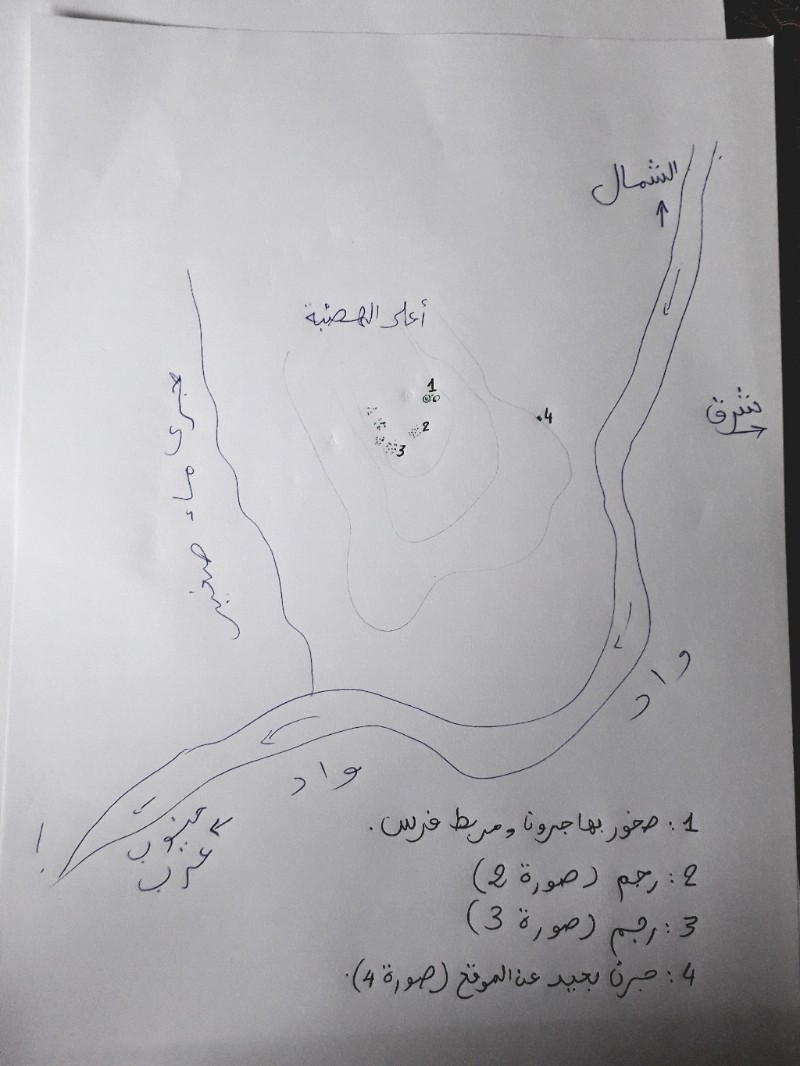 الشمال
أعلى الهضبة
1
شرق
4
2
3
مجرى ماء صغير
واد
واد
جنوب
غرب
1: صخور بها جرونا ومربط فرس.
2: رجم (صورة 2)
3: رجم (صورة 3)
4: جرن بعيد عن الموقع (صورة 4).